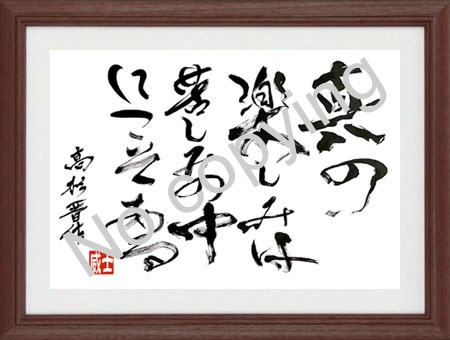 真の
楽しみは
苦しみの中
にこそある
高杉晋作
No copying